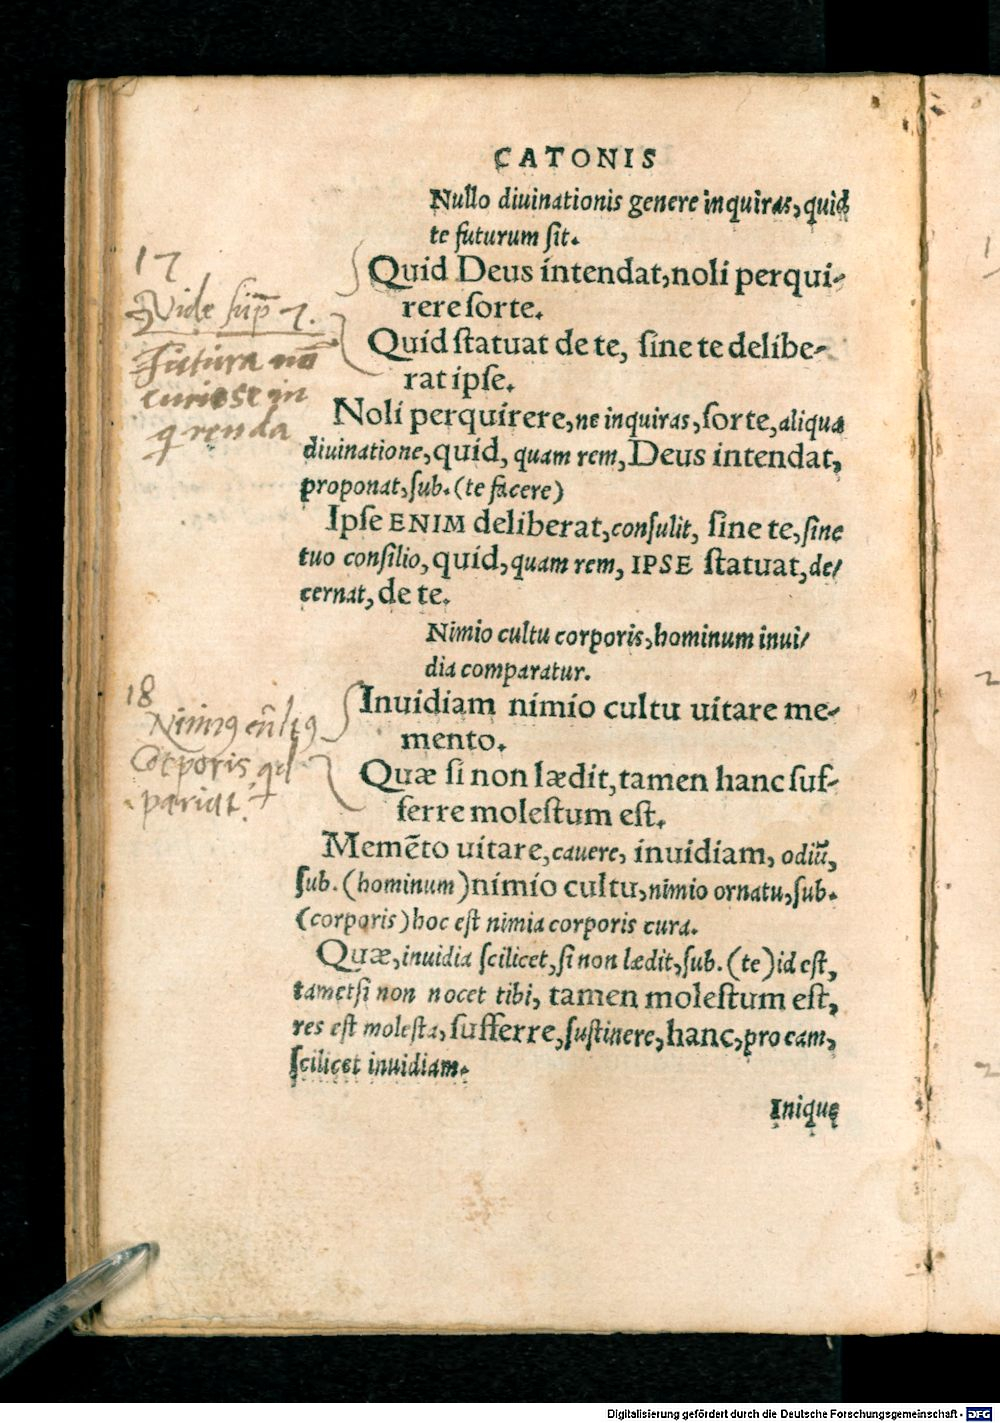 CATONIS
Nullo diuinationis genere inquiras, quid
te futurum ſit.
17
Quid Deus intendat, noli perqui-
rere ſorte.
Vide ſup̄ 7.
Quid ſtatuat de te, ſine te delibe-
rat ipſe.
Futura nō
curioſe in
q̄renda
Noli perquirere, ne inquiras, ſorte, aliqua
diuinatione, quid, quam rem, Deus intendat,
proponat, ſub. (te facere)
Ipſe ENIM deliberat, conſulit, ſine te, ſine
tuo conſilio, quid, quam rem, IPSE ſtatuat, de/
cernat, de te.
Nimio cultu corporis, hominum inui/
dia comparatur.
18
Inuidiam nimio cultu uitare me-
mento.
Corporis
pariat.
Quæ ſi non lædit, tamen hanc ſuf-
ferre moleſtum eſt.
Memēto uitare, cauere, inuidiam, odiū,
ſub. (hominum) nimio cultu, nimio ornatu, ſub.
(corporis) hoc eſt nimia corporis cura.
Quæ, inuidia ſcilicet, ſi non lædit, ſub. (te) id eſt,
tametſi non nocet tibi, tamen moleſtum eſt,
res eſt moleſta, ſufferre, ſuſtinere, hanc, pro eam,
ſcilicet inuidiam.
Inique
Digitalisierung gefördert durch die Deutsche Forschungsgemeinschaft - DFG